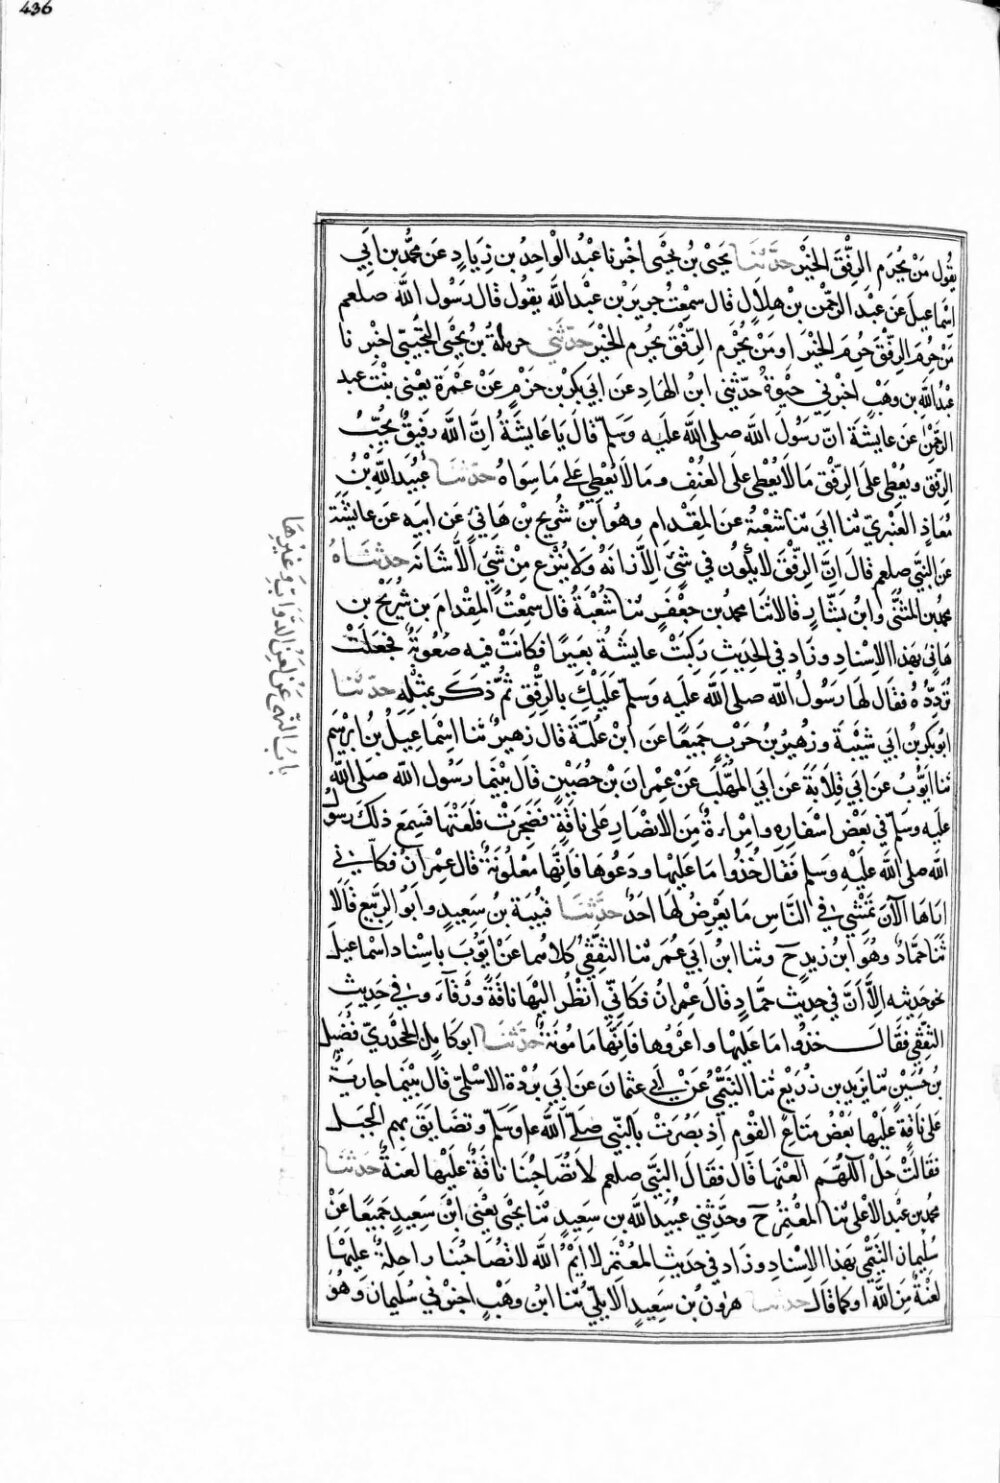 436
يقول مَنْ يُحْرَم الرِّفْقَ الخَيْرَ حدّثنا يَحْيَى بنُ يَحْيَى اخْبرنا عَبْدُ الْوَاحِدِ بن زِيَادٍ عَن محمَّد بن ابِي
اِسْمَاعِيلَ عَن عَبْد الرحْمٰن بن هِلَالٍ قال سمِعْتُ جريرَ بْن عَبْد اللّٰه يقول قال رَسُول اللّٰه صلعم
مَنْ حُرِمَ الرِّفْقَ حُرِمَ الخَيْرَ او مَنْ يُحْرَم الرِّفْقَ يحُرم الخَيْرَ حدّثني حرملةُ بنُ يحْيَى التُّجِيْبِيّ اخبر نا
عبْدُ اللّٰه بن وهْبٍ اخبرني حَيْوَةُ حدّثني ابنُ الهادِ عن ابي بكر بْن حَزْمٍ عَنْ عَمْرَة يعْني بنْتَ عبد
الرحْمٰن عَن عايشَة انّ رَسُولَ اللّٰه صلى اللّٰه علَيه وسَلم قال يَا عَايشَةُ اِنَّ اللّٰه رفيقٌ يُحِبُّ
الرِّفْقَ ويُعْطِي علَى الرِّفْق مَا لَا يُعْطِي علَى العُنْفِ ومَا لَا يُعْطِي عَلى مَا سِوَاهُ حدّثنا عُبيْدُ اللّٰه بْنُ
مُعَاذٍ العَنْبريّ ثنا ابي ثنا شعْبَةُ عنِ المِقْدَامِ وهُوَ ابْنُ شُرَيح بْن هَانِئٍ عَن ابيهِ عَن عايشَة
عَنِ النَّبيّ صلعم قالَ اِنَّ الرِّفْقَ لَا يَكُون في شَيْءٍ اِلَّا زَانَهُ وَلَا يُنْزَعُ مِنْ شَيْءٍ اِلَّا شَانَهُ حدثنَاهُ
محمد بن المثنَّى وابنُ بَشَّارٍ قالا ثنَا محمد بن جَعْفَرٍ ثنا شُعْبَةُ قال سمِعْتُ المِقْدَامَ بن شُرَيْح بن
هَانِئٍ بهذا الاِسْنادِ وزاد في الحَدِيثِ رَكِبَتْ عايشَةُ بَعيرًا فكانَتْ فيه صُعُوبَةٌ فجَعَلَتْ
تُرَدِّدُهُ فقال لهَا رسُولُ اللّٰه صلى اللّٰه علَيه وسَلم عَلَيْكِ بالرِّفْقِ ثمَّ ذكَرَ بمثْلِه حدّثنا
ابو بكر بنُ ابي شَيْبَةَ وزهيْرُ بن حَرْبٍ جَميعًا عَن ابْن عُلَيَّةَ قالَ زهيْرٌ ثنا اِسْمَاعيلُ بنُ ابرٰهِيم
ثنا ايُّوبُ عَن ابي قِلَابَةَ عَن ابي المهَلَّب عَنْ عِمْرانَ بن حُصَيْنٍ قَال بيْنَمَا رسُول اللّٰه صلى اللّٰه
عليه وسَلم في بَعْض اسْفارِه وامْراةٌ من الانصَارِ عَلى ناقَةٍ فضَجِرَتْ فلَعَنَتْهَا فَسَمِع ذلكَ رسُولُ
اللّٰه صلى اللّٰه علَيْهِ وسَلم فقَال خُذُوا مَا علَيْها ودَعُوهَا فَاِنَّهَا مَلْعُونَةٌ قالَ عِمْرَانُ فكَاَنِّي
ارَاهَا الآنَ تمْشِي في النَّاسِ مَا يَعْرِضُ لهَا احَدٌ حدّثنا قتيبَة بنُ سَعِيدٍ وابُو الرَّبيع قالَا
ثنَا حمَّادٌ وهُوَ ابنُ زيدٍ ح وثنا ابنُ ابي عُمَرَ ثنا الثقَفِيُّ كلاهما عَنْ ايُّوبَ بِاسْنادِ اسْماعيلَ
نحو حَديثِه اِلَّا اَنَّ في حَديثِ حمَّادٍ قالَ عِمْرَانُ فكانِّي انْظُر اليْهَا ناقَةً وَرْقَآءَ وفي حَديثِ
الثقَفِيّ فقَالَ خذُوا مَا علَيْها واعْرُوهَا فَاِنَّها مَلْعُونَةٌ حدّثنا ابو كَامِلٍ الجحْدَرِيّ فُضَيلُ
بنُ حُسَيْنٍ ثنا يزيد بن زُرَيْعٍ ثنا التَّيْمِيُّ عَنْ ابي عثمان عَن ابي بُرْزَةَ الاسْلمِيّ قالَ بيْنَما جاريَةٌ
عَلَى نَاقَةٍ علَيْها بَعْضُ متاعِ القَوْمِ اِذ بَصُرَتْ بالنَّبيّ صَلّى اللّٰه علَ وسَلّم وتضَايَقَ بهِم الجَبَلُ
فقَالَتْ حَلْ اَللّٰهُمَّ الْعَنْهَا قَال فقَالَ النَّبيّ صلعم لَا تُصَاحِبُنا ناقَةٌ علَيْهَا لعنَةٌ حدّثنا
محمد بن عَبْد الاعْلَى ثنا المعْتَمرُ ح وحدّثني عبيْدُ اللّٰه بن سَعِيدٍ ثنا يحْيَى يعْنِي ابْنَ سَعِيدٍ جَميعًا عَنْ
سُلَيمانَ التَّيْمِيّ بهَذا الاِسْنادِ وزَاد في حَديثِ المُعْتَمر لَا ايْمُ اللّٰهِ لا تُصَاحبُنا راحِلةٌ علَيْها
لعْنَةٌ مِنَ اللّٰهِ او كما قالَ حدّثنا هٰرون بن سَعِيدٍ الايليّ ثنا ابنُ وهْبٍ اخبرني سُليمانُ وهُوَ
بابُ النَّهي عَنْ لَعْنِ الدَّوَابّ وغيْرِهَا